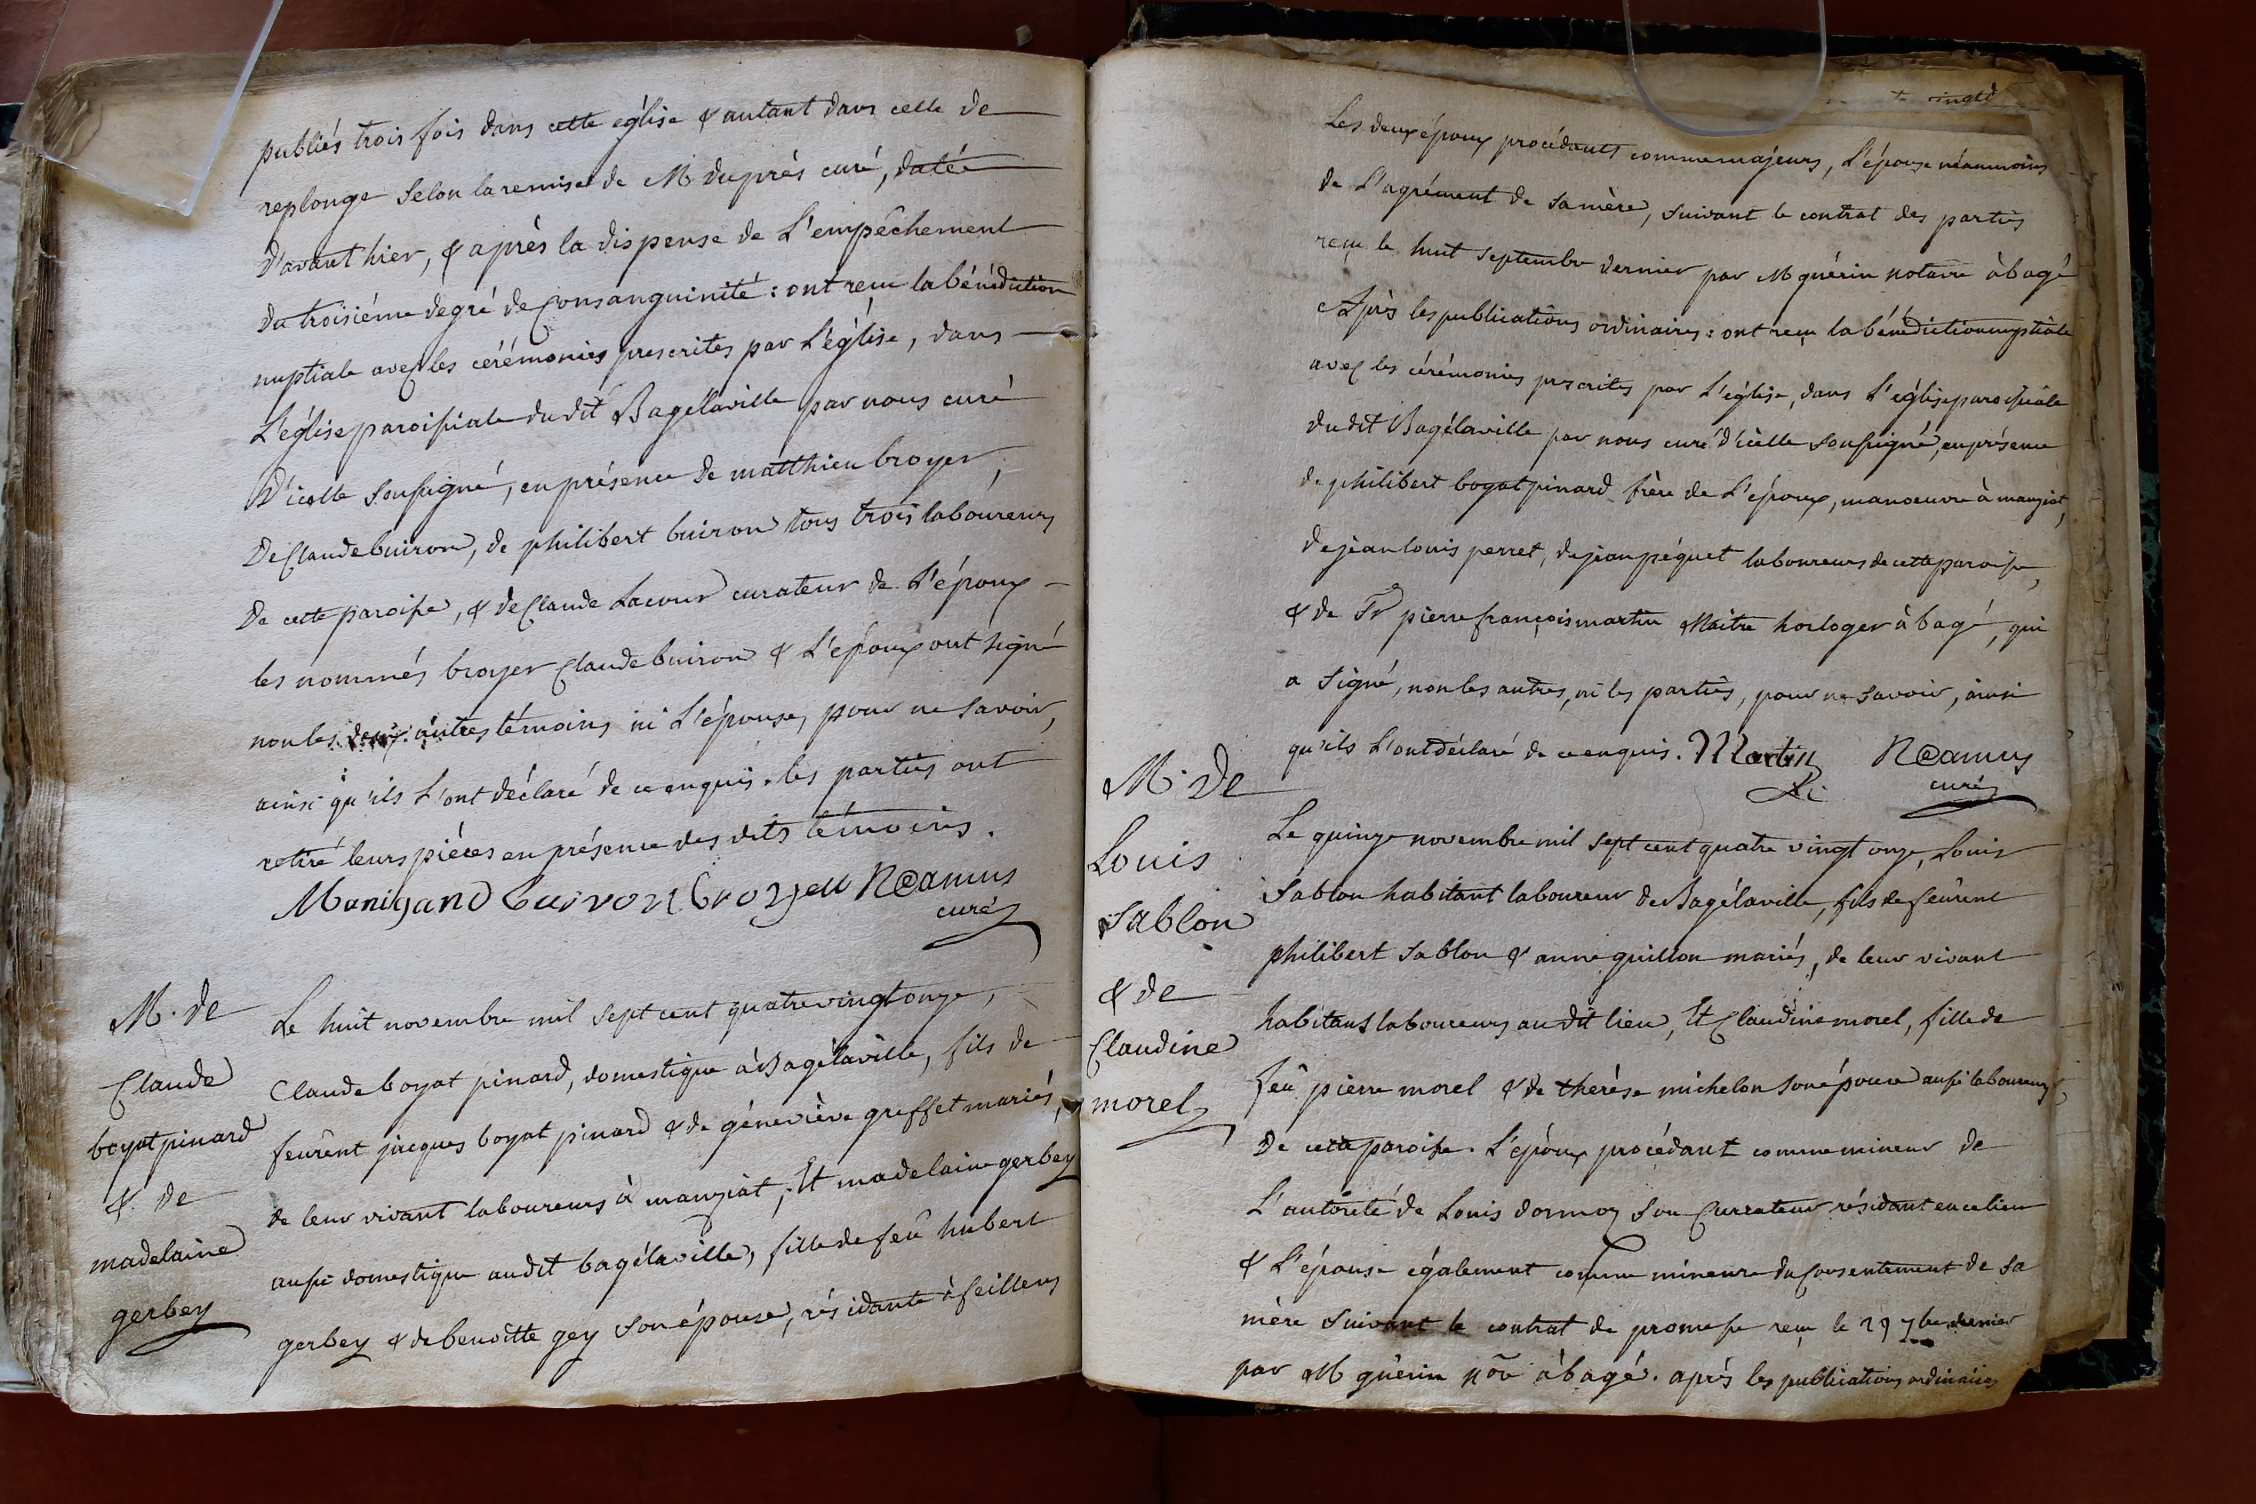 publiés trois fois dans cette église & autant dans celle de
replonge selon la remise de M duprés curé, datée
d'avant hier, & après la dispense de L'empêchement
du troisiéme dégré de Consanguinité : ont reçu la bénédiction
nuptiale avec les cérémonies prescrites par L'église, dans
L'église paroissiale du dit Bagélaville par nous curé
D'icelle soussigné, en présence de matthieu broyer,
De Claude buiron, de philibert buiron tous trois laboureurs
De cette paroisse, & de Claude Lacour curateur de L'époux
les nommés broyer Claude buiron & L'époux ont signé
non les deux autres témoins ni L'épouse, pour ne savoir,
ainsi qu'ils L'ont déclaré de ce enquis. les parties ont
retiré leurs piéces en présence des dits témoins.
Manigand buiron broyer N@amus
curé
M. de
Claude
boyat pinard
& de
madelaine
gerbey
Le huit novembre mil sept cent quatre vingt onze,
Claude boyat pinard, domestique à Bagélaville, fils de
feurent jacques boyat pinard & de géneviève greffet mariés,
de leur vivant laboureurs à manziat, Et madelaine gerbey
aussi domestique audit bagélaville, fille de feû hubert
gerbey & de benoîtte gey son épouse, résidante à feillens
vingt d
Les deux époux procédants comme majeurs, L'épouse néanmoins
de L'agrément de sa mère, suivant le contrat des parties
reçu le huit septembre dernier par M guérin notaire à bagé
Après les publications ordinaires : ont reçu la bénédiction nuptiale
avec les cérémonies prscrites par L'église, dans L'église paroissiale
du dit Bagélaville par nous curé d'icelle soussigné, en présence
de philibert boyat pinard frère de L'époux, manoeuvre à manziat,
de jean louis perret, de jean péquet laboureurs de cette paroisse,
& de Sr pierre françois martin Maitre horloger à bagé, qui
a signé, non les autres, ni les parties, pour ne savoir, ainsi
qu'ils L'ont déclaré de ce enquis. Martin N@amus
curé
M. De
Louis
Sablon
& de
Claudine
morel
Le quinze novembre mil sept cent quatre vingt onze, Louis
Sablon habitant laboureur de Bagélaville, fils de feûrent
philibert Sablon & anne guillon mariés, de leur vivant
habitans laboureurs audit lieu, Et Claudine morel, fille de
feû pierre morel & de thérèse michelon son épouse aussi laboureurs
De cette paroisse. L'époux procédant comme mineur de
L'autorité de Louis dormoy son Currateur résidant en ce lieu
& L'épouse également comme mineure du Consentement de sa
mère suivant le contrat de promesse reçu le 29 7bre dernier
par M guérin nore à bagé. après les publications ordinaires